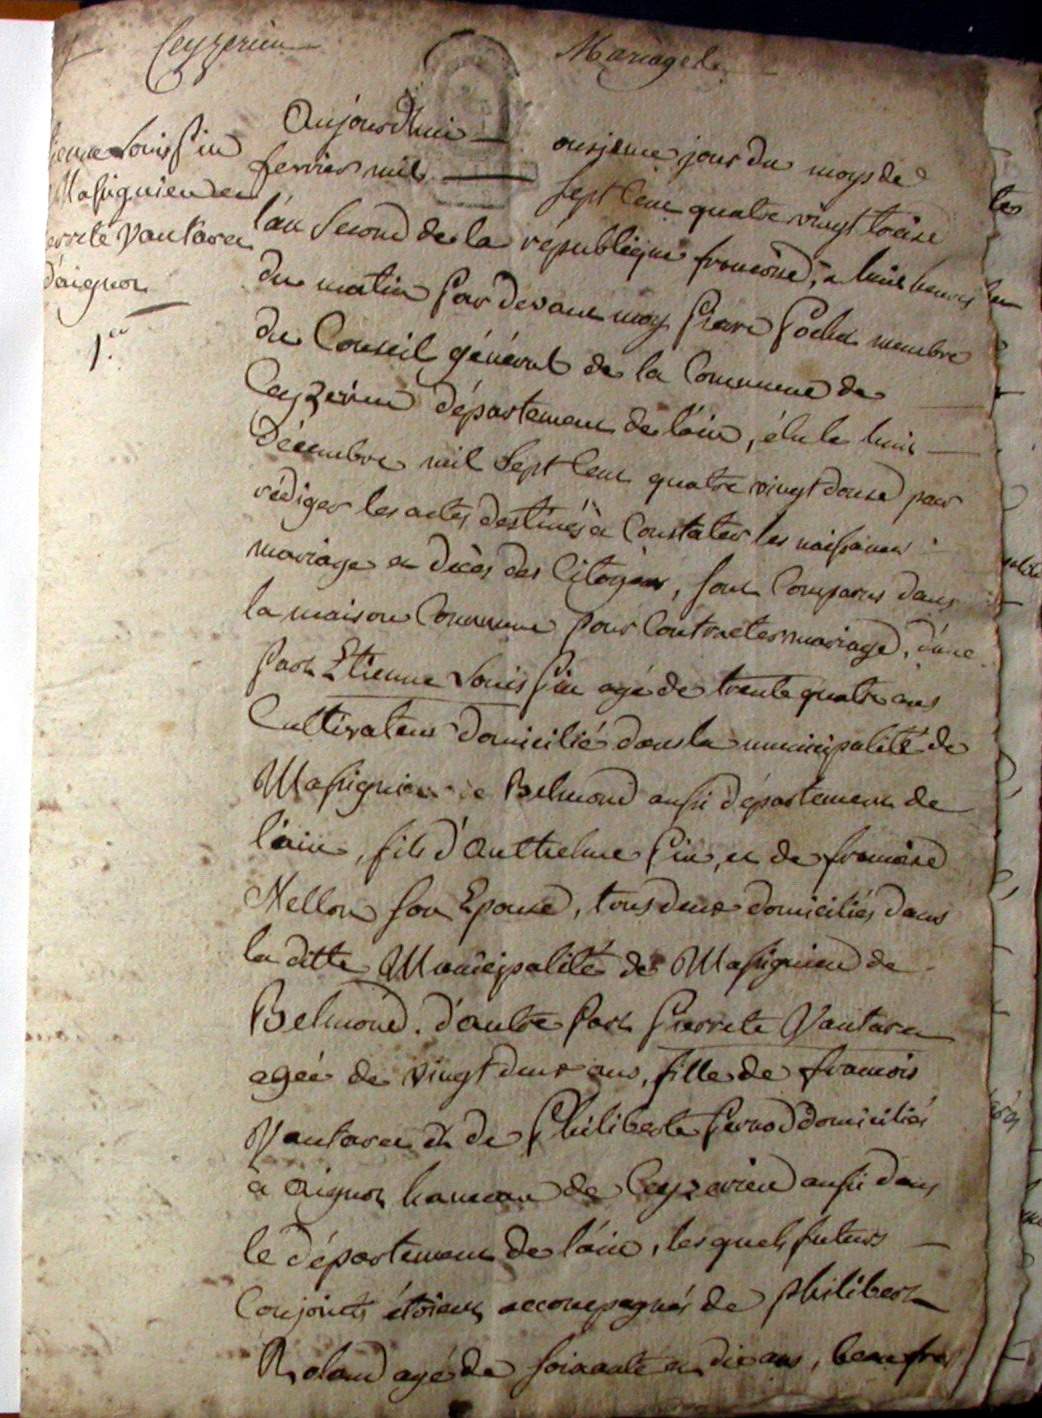 Ceyzerieu Mariage de
Etienne Louis fin
Massignieu et
Pierrete Vantaret
d'aignoz
1.er
Aujourdhui onzieme jour du moys de
fevrier mil sept cent quatre vingt treize
l'an second de la république francoise, a huit heures
du matin par devant moy pierre pochet membre
du Conseil général de la Commune de
Ceyzerieu département de l'ain, élu le huit
décembre mil sept cent quatre vingt douze pour
rédiger les actes destinés à Constater les naissances
mariage et décès des Citoyens, sont Comparus dans
la maison Commune pour Contracter mariage, d'une
part Etienne Louis fin agé de trente quatre ans
Cultivateur domicilié dans la municipalité de
Massignieu de Belmond aussi département de
l'ain, fils d'Anthelme fin, et de francoise
Mellon son Epouse, tous deux domiciliés dans
la ditte Municipalité de Massignieu de
Belmond. d'autre part pierrete Vantaret
agée de vingt deux ans, fille de francois
Vantaret et de Philiberte pernod domiciliés
à Aignoz hameau de Ceyzerieu aussi dans
le département de l'ain, lesquels futurs
Conjoints étoient accompagnés de philibert
Roland agé de soixante et dix ans, beaufrere